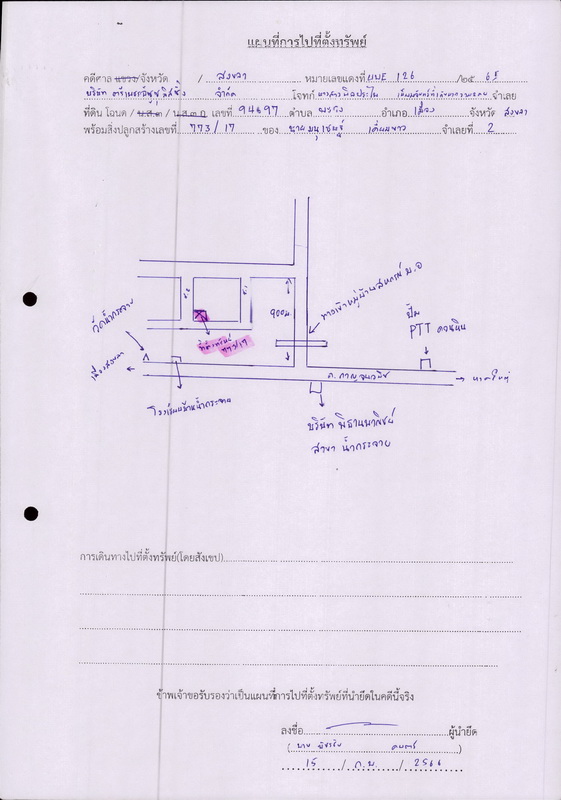 แผนที่การไปที่ตั้งทรัพย์
คดีศาล แขวง/จังหวัด / สงขลา หมายเลขแดงที่ ผบE 126 /๒๕ 65
บริษัท จำกัด โจทก์ จำเลย
ที่ดิน โฉนด / น.ส.๓ / น.ส.๓ ก เลขที่ 94697 ตำบล พะวง อำเภอ เมือง จังหวัด สงขลา
พร้อมสิ่งปลูกสร้างเลขที่ 773/17 ของ นาย จำเลยที่ 2
ทางเข้าหมู่บ้านสหกรณ์ ม.อ
วัดน้ำกระจาย
900ม
ปั๊ม
PTT
ที่ตั้งทรัพย์
773/17
เมืองสงขลา
ถ. กาญจนวนิช
หาดใหญ่
โรงเรียนบ้านน้ำกระจาย
บริษัท พิธานพาณิชย์
สาขา น้ำกระจาย
การเดินทางไปที่ตั้งทรัพย์(โดยสังเขป)
ข้าพเจ้าขอรับรองว่าเป็นแผนที่การไปที่ตั้งทรัพย์ที่นำยึดในคดีนี้จริง
ลงชื่อ ผู้นำยึด
( นาย )
15 / ก.พ. / 2566